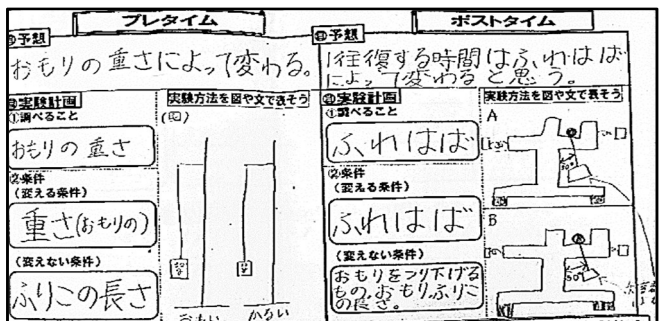 プレタイム
予想
おもりの重さによって変わる。
実験計画
①調べること
おもりの重さ
②条件
(変える条件)
重さ(おもりの)
(変えない条件)
ふりこの長さ
実験方法を図や文で表そう
(図)
おもい
かるい
ポストタイム
予想
1往復する時間はふれはば
によって変わると思う。
実験計画
①調べること
ふれはば
②条件
(変える条件)
ふれはば
(変えない条件)
おもりをつり下げる
もの、おもり、ふりこ
の長さ。
実験方法を図や文で表そう
A
B